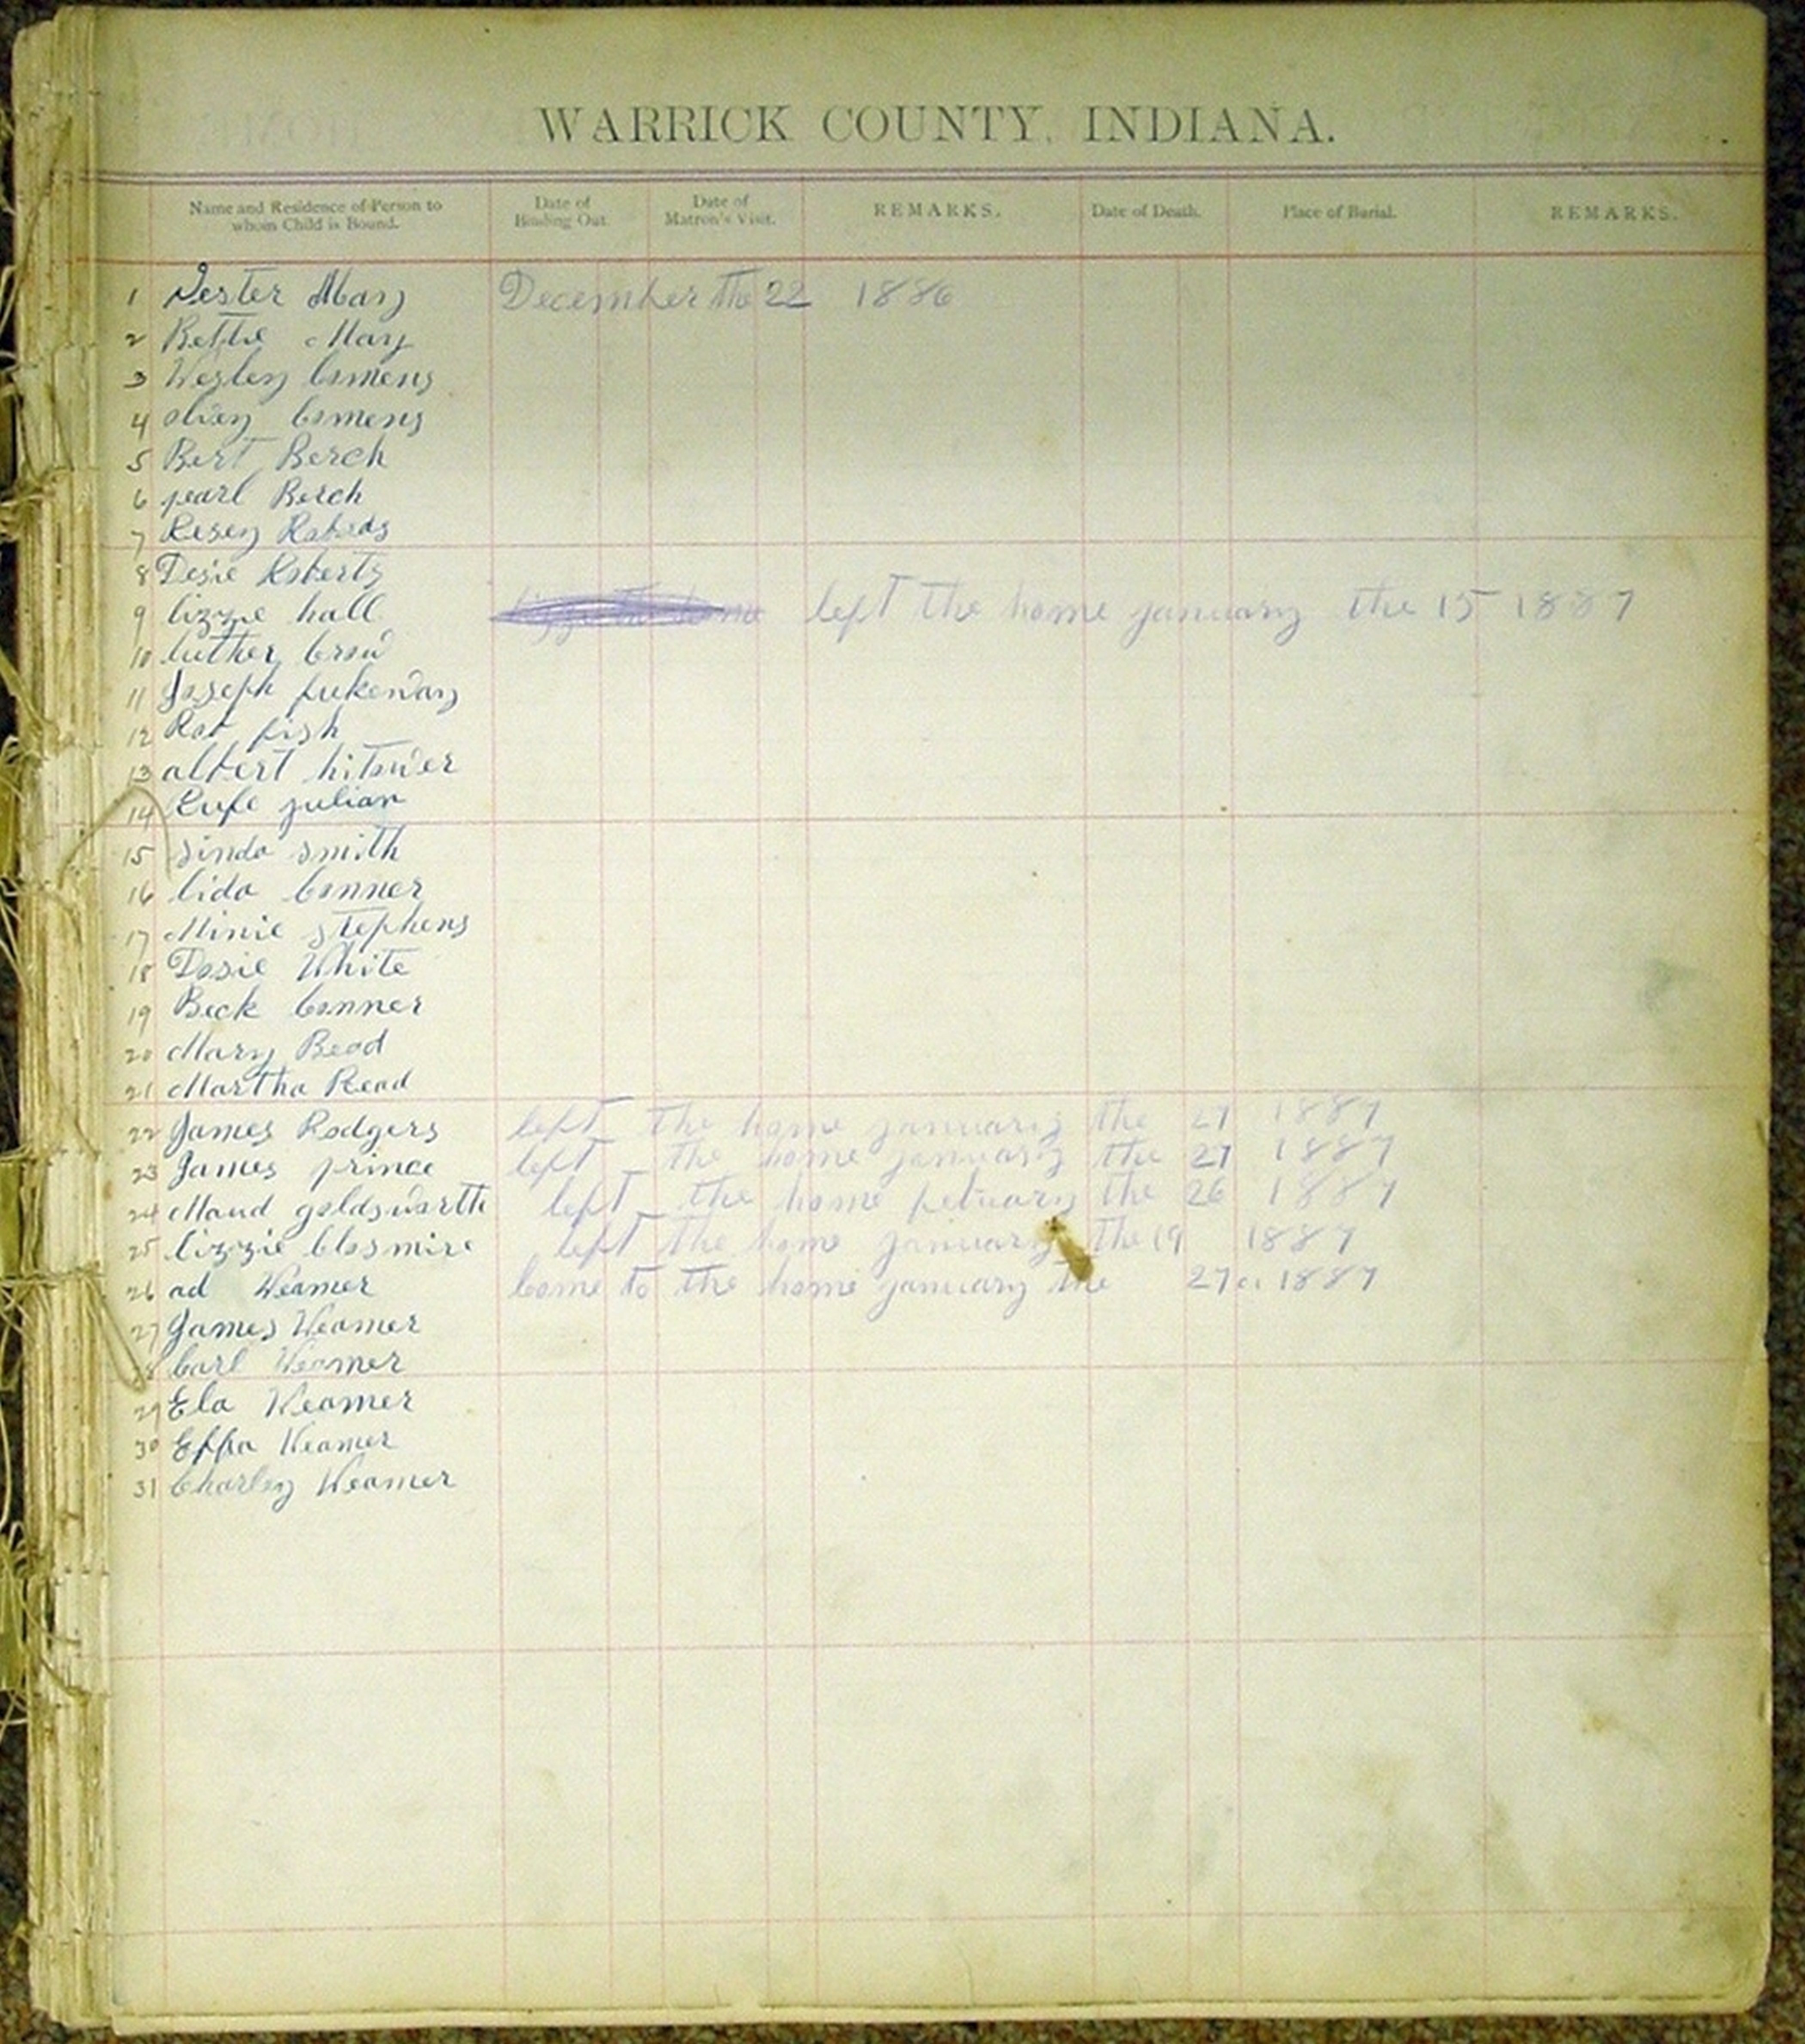 WARRICK COUNTY, INDIANA.
Name and Residence of Person to whom Child is Bound. Date of Binding Out. Date of Matron's Visit. REMARKS. Date of Death. Place of Burial. REMARKS.
1 Mary December the 22 1886
2 Bettie Mary
3 Wesley Comens
4 Comens
5 Bert Berch
6 pearl Berch
7 Rosey
8 Dosie Roberts
9 lizzie hall left the home january the 15 1887
10 luther
11 Joseph
12 fish
13 albert
14 Rufe julian
15 smith
16 lida Conner
17 Minie stephens
18 Dosie White
19 Beck Conner
20 Mary
21 Martha Read
22 James Rodgers left the home january the 27 1887
23 James prince left the home january the 27 1887
24 Maud goldsworth left the home the 26 1887
25 lizzie left the home january the 19 1887
26 ad Weamer Come to the home january the 27 1887
27 James Weamer
28 Carl Weamer
29 Ela Weamer
30 Effa Weamer
31 Charley Weamer